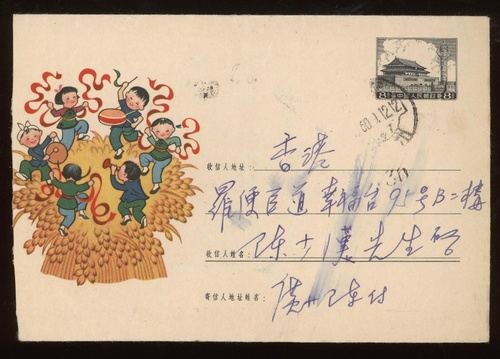 8 中国人民邮政 8
60.1.12.12
收信人地址: 香港
羅便臣道幸福台95号B二樓
收信人姓名: 陈士漢先生啓
寄信人地址姓名: 廣州陈付